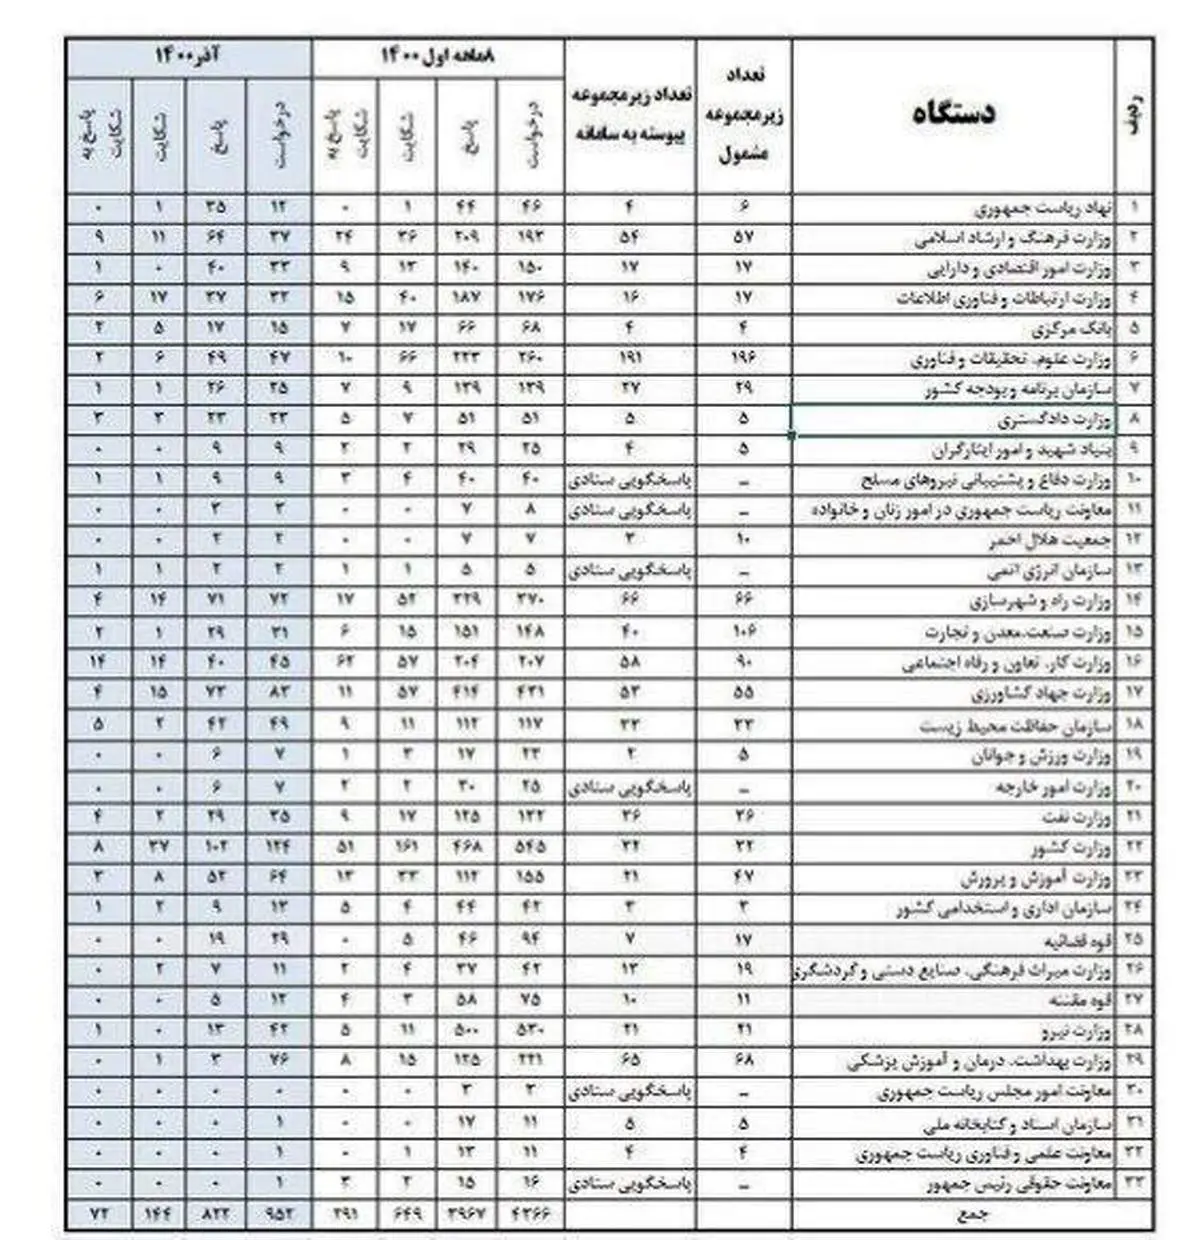 ردیف دستگاه تعداد زیرمجموعه مشمول تعداد زیرمجموعه پیوسته به سامانه ۸ماهه اول ۱۴۰۰ آذر ۱۴۰۰
درخواست پاسخ شکایت پاسخ به شکایت درخواست پاسخ شکایت پاسخ به شکایت
۱ نهاد ریاست جمهوری ۶ ۴ ۴۶ ۴۴ ۱ ۰ ۱۲ ۳۵ ۱ ۰
۲ وزارت فرهنگ و ارشاد اسلامی ۵۷ ۵۴ ۱۹۳ ۲۰۹ ۳۶ ۲۴ ۳۷ ۶۴ ۱۱ ۹
۳ وزارت امور اقتصادی و دارایی ۱۷ ۱۷ ۱۵۰ ۱۴۰ ۱۳ ۹ ۳۳ ۴۰ ۰ ۱
۴ وزارت ارتباطات و فناوری اطلاعات ۱۷ ۱۶ ۱۷۶ ۱۸۷ ۴۰ ۱۵ ۳۲ ۳۷ ۱۷ ۶
۵ بانک مرکزی ۴ ۴ ۶۸ ۶۶ ۱۷ ۷ ۱۵ ۱۷ ۵ ۲
۶ وزارت علوم، تحقیقات و فناوری ۱۹۶ ۱۹۱ ۲۶۰ ۲۲۳ ۶۶ ۱۰ ۴۷ ۴۹ ۶ ۲
۷ سازمان برنامه و بودجه کشور ۲۹ ۲۷ ۱۳۹ ۱۳۹ ۹ ۷ ۲۵ ۲۶ ۱ ۱
۸ وزارت دادگستری ۵ ۵ ۵۱ ۵۱ ۷ ۵ ۲۳ ۲۳ ۳ ۳
۹ بنیاد شهید و امور ایثارگران ۵ ۴ ۲۵ ۲۹ ۲ ۲ ۹ ۹ ۰ ۰
۱۰ وزارت دفاع و پشتیبانی نیروهای مسلح – پاسخگویی ستادی ۴۰ ۴۰ ۴ ۳ ۹ ۹ ۱ ۱
۱۱ معاونت ریاست جمهوری در امور زنان و خانواده – پاسخگویی ستادی ۸ ۷ ۰ ۰ ۳ ۳ ۰ ۰
۱۲ جمعیت هلال احمر ۱۰ ۳ ۷ ۷ ۰ ۰ ۲ ۲ ۰ ۰
۱۳ سازمان انرژی اتمی – پاسخگویی ستادی ۵ ۵ ۱ ۱ ۲ ۲ ۱ ۱
۱۴ وزارت راه و شهرسازی ۶۶ ۶۶ ۳۷۰ ۳۲۹ ۵۲ ۱۷ ۷۲ ۷۱ ۱۴ ۴
۱۵ وزارت صنعت،معدن و تجارت ۱۰۶ ۴۰ ۱۴۸ ۱۵۱ ۱۵ ۶ ۳۱ ۲۹ ۱ ۲
۱۶ وزارت کار، تعاون و رفاه اجتماعی ۹۰ ۵۸ ۲۰۷ ۲۰۴ ۵۷ ۶۲ ۴۵ ۴۰ ۱۴ ۱۴
۱۷ وزارت جهاد کشاورزی ۵۵ ۵۳ ۴۳۱ ۴۱۴ ۵۷ ۱۱ ۸۳ ۷۳ ۱۵ ۴
۱۸ سازمان حفاظت محیط زیست ۳۳ ۳۳ ۱۱۷ ۱۱۲ ۱۱ ۹ ۴۹ ۴۲ ۲ ۵
۱۹ وزارت ورزش و جوانان ۵ ۲ ۲۳ ۱۷ ۳ ۱ ۷ ۶ ۰ ۰
۲۰ وزارت امور خارجه – پاسخگویی ستادی ۲۵ ۳۰ ۲ ۲ ۷ ۶ ۰ ۰
۲۱ وزارت نفت ۳۶ ۳۶ ۱۳۲ ۱۲۵ ۱۷ ۹ ۳۵ ۲۹ ۲ ۴
۲۲ وزارت کشور ۳۲ ۳۲ ۵۴۵ ۴۶۸ ۱۶۱ ۵۱ ۱۲۴ ۱۰۲ ۳۷ ۸
۲۳ وزارت آموزش و پرورش ۴۷ ۲۱ ۱۵۵ ۱۱۲ ۳۳ ۱۳ ۶۴ ۵۲ ۸ ۳
۲۴ سازمان اداری و استخدامی کشور ۳ ۳ ۴۲ ۴۴ ۴ ۵ ۱۳ ۹ ۲ ۱
۲۵ قوه قضائیه ۱۷ ۷ ۹۴ ۴۶ ۵ ۰ ۲۹ ۱۹ ۰ ۰
۲۶ وزارت میراث فرهنگی، صنایع دستی و گردشگری ۱۹ ۱۳ ۴۲ ۳۷ ۴ ۲ ۱۱ ۷ ۲ ۰
۲۷ قوه مقننه ۱۱ ۱۰ ۷۵ ۵۸ ۳ ۴ ۱۲ ۵ ۰ ۰
۲۸ وزارت نیرو ۲۱ ۲۱ ۵۳۰ ۵۰۰ ۱۱ ۵ ۴۲ ۱۳ ۰ ۱
۲۹ وزارت بهداشت، درمان و آموزش پزشکی ۶۸ ۶۵ ۲۲۱ ۱۲۵ ۱۵ ۸ ۷۶ ۳ ۱ ۰
۳۰ معاونت امور مجلس ریاست جمهوری – پاسخگویی ستادی ۳ ۳ ۰ ۰ ۰ ۰ ۰ ۰
۳۱ سازمان اسناد و کتابخانه ملی ۵ ۵ ۱۱ ۱۷ ۰ ۰ ۱ ۰ ۰ ۰
۳۲ معاونت علمی و فناوری ریاست جمهوری ۴ ۴ ۱۱ ۱۳ ۱ ۰ ۱ ۰ ۰ ۰
۳۳ معاونت حقوقی رئیس جمهور – پاسخگویی ستادی ۱۶ ۱۵ ۲ ۳ ۱ ۰ ۰ ۰
جمع ۴۳۶۶ ۳۹۶۷ ۶۴۹ ۲۹۱ ۹۵۲ ۸۲۲ ۱۴۴ ۷۲